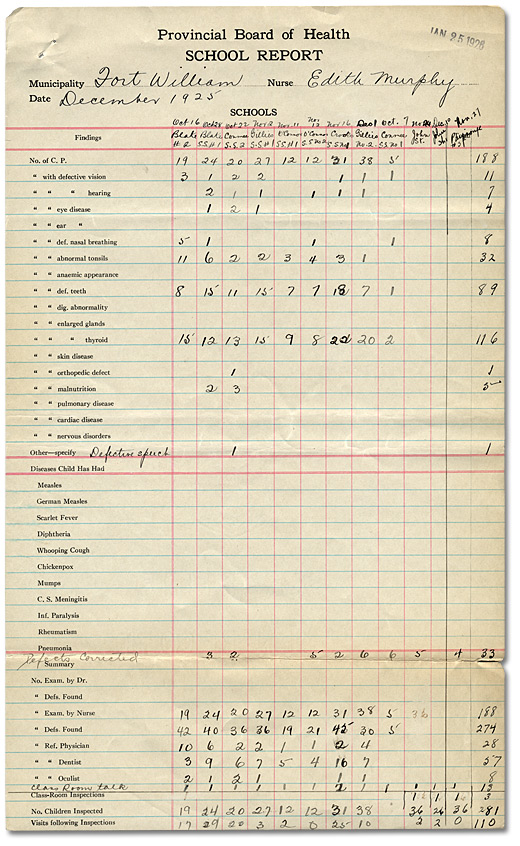 Provincial Board of Health
JAN 25 1926
SCHOOL REPORT
Municipality Fort William Nurse Edith Murphy
Date December 1925
SCHOOLS
Findings Oct 16 Oct 28 Oct 22 Nov 2 Nov 11 Nov 12 Nov 16 Dec 1 Oct. 7 Nov. 21
Blake Blake Connee Gillies O'Connor O'Connor Crooks Gillies Connee John St.
No. of C. P. 19 24 20 27 12 12 31 38 5 188
" with defective vision 3 1 2 2 1 1 1 11
" " " hearing 2 1 1 1 1 1 7
" " eye disease 1 2 1 4
" " ear "
" " def. nasal breathing 5 1 1 1 8
" " abnormal tonsils 11 6 2 2 3 4 3 1 32
" " anaemic appearance
" " def. teeth 8 15 11 15 7 7 18 7 1 89
" " dig. abnormality
" " enlarged glands
" " " thyroid 15 12 13 15 9 8 22 20 2 116
" " skin disease
" " orthopedic defect 1 1
" " malnutrition 2 3 5
" " pulmonary disease
" " cardiac disease
" " nervous disorders
Other—specify Defective speech 1 1
Diseases Child Has Had
Measles
German Measles
Scarlet Fever
Diphtheria
Whooping Cough
Chickenpox
Mumps
C. S. Meningitis
Inf. Paralysis
Rheumatism
Pneumonia
Defects Corrected 3 2 5 2 6 6 5 4 33
Summary
No. Exam. by Dr.
" Defs. Found
" Exam. by Nurse 19 24 20 27 12 12 31 38 5 36 188
" Defs. Found 42 40 36 36 19 21 45 30 5 274
" Ref. Physician 10 6 2 2 1 1 2 4 28
" " Dentist 3 9 6 7 5 4 16 7 57
" " Oculist 2 1 2 1 1 1 8
Class Room talk 1 1 1 1 1 1 2 1 1 1 1 1 13
Class-Room Inspections 1 1 1 3
No. Children Inspected 19 24 20 27 12 12 31 38 36 26 36 281
Visits following Inspections 17 29 20 3 2 0 25 10 2 2 0 110